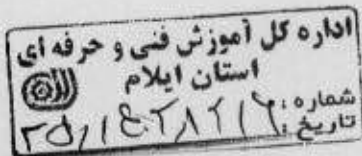 اداره کل آموزش فنی و حرفه ای
استان ایلام
شماره:
تاریخ: